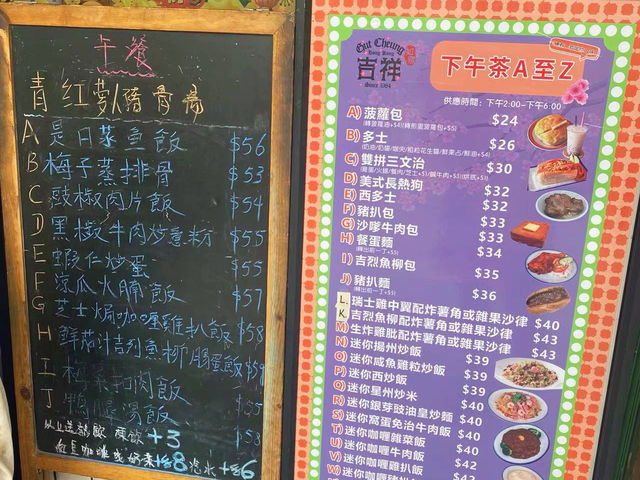 午餐
青紅蘿蔔豬骨湯
A 是日蒸魚飯 $56
B 梅子蒸排骨 $53
C 豉椒肉片飯 $54
D 黑椒牛肉炒意粉 $55
E 蝦仁炒蛋 $55
F 涼瓜火腩飯 $57
G 芝士焗咖喱雞扒飯 $58
H 鮮茄汁吉列魚柳腸蛋飯 $59
I
J
+3
+$8 汽水+$6
Gut Cheung
Hong Kong
吉祥
Since 1984
下午茶A至Z
供應時間：下午2:00-下午6:00
A) 菠蘿包 $24
B) 多士 $26
C) 雙拼三文治 $30
D) 美式長熱狗 $32
E) 西多士 $32
F) 豬扒包 $33
G) 沙嗲牛肉包 $33
H) 餐蛋麵 $34
I) 吉烈魚柳包 $35
J) 豬扒麵 $36
L. 瑞士雞中翼配炸薯角或雜果沙律 $40
K. 吉烈魚柳配炸薯角或雜果沙律 $43
M) 生炸雞髀配炸薯角或雜果沙律 $43
N) 迷你揚州炒飯 $39
O) 迷你咸魚雞粒炒飯 $39
P) 迷你西炒飯 $39
Q) 迷你星州炒米 $39
R) 迷你銀芽豉油皇炒麵 $40
S) 迷你窩蛋免治牛肉飯 $40
T) 迷你咖喱雜菜飯 $40
U) 迷你咖喱牛肉飯 $42
V) 迷你咖喱雞扒飯 $42
W) 迷你咖喱豬扒飯